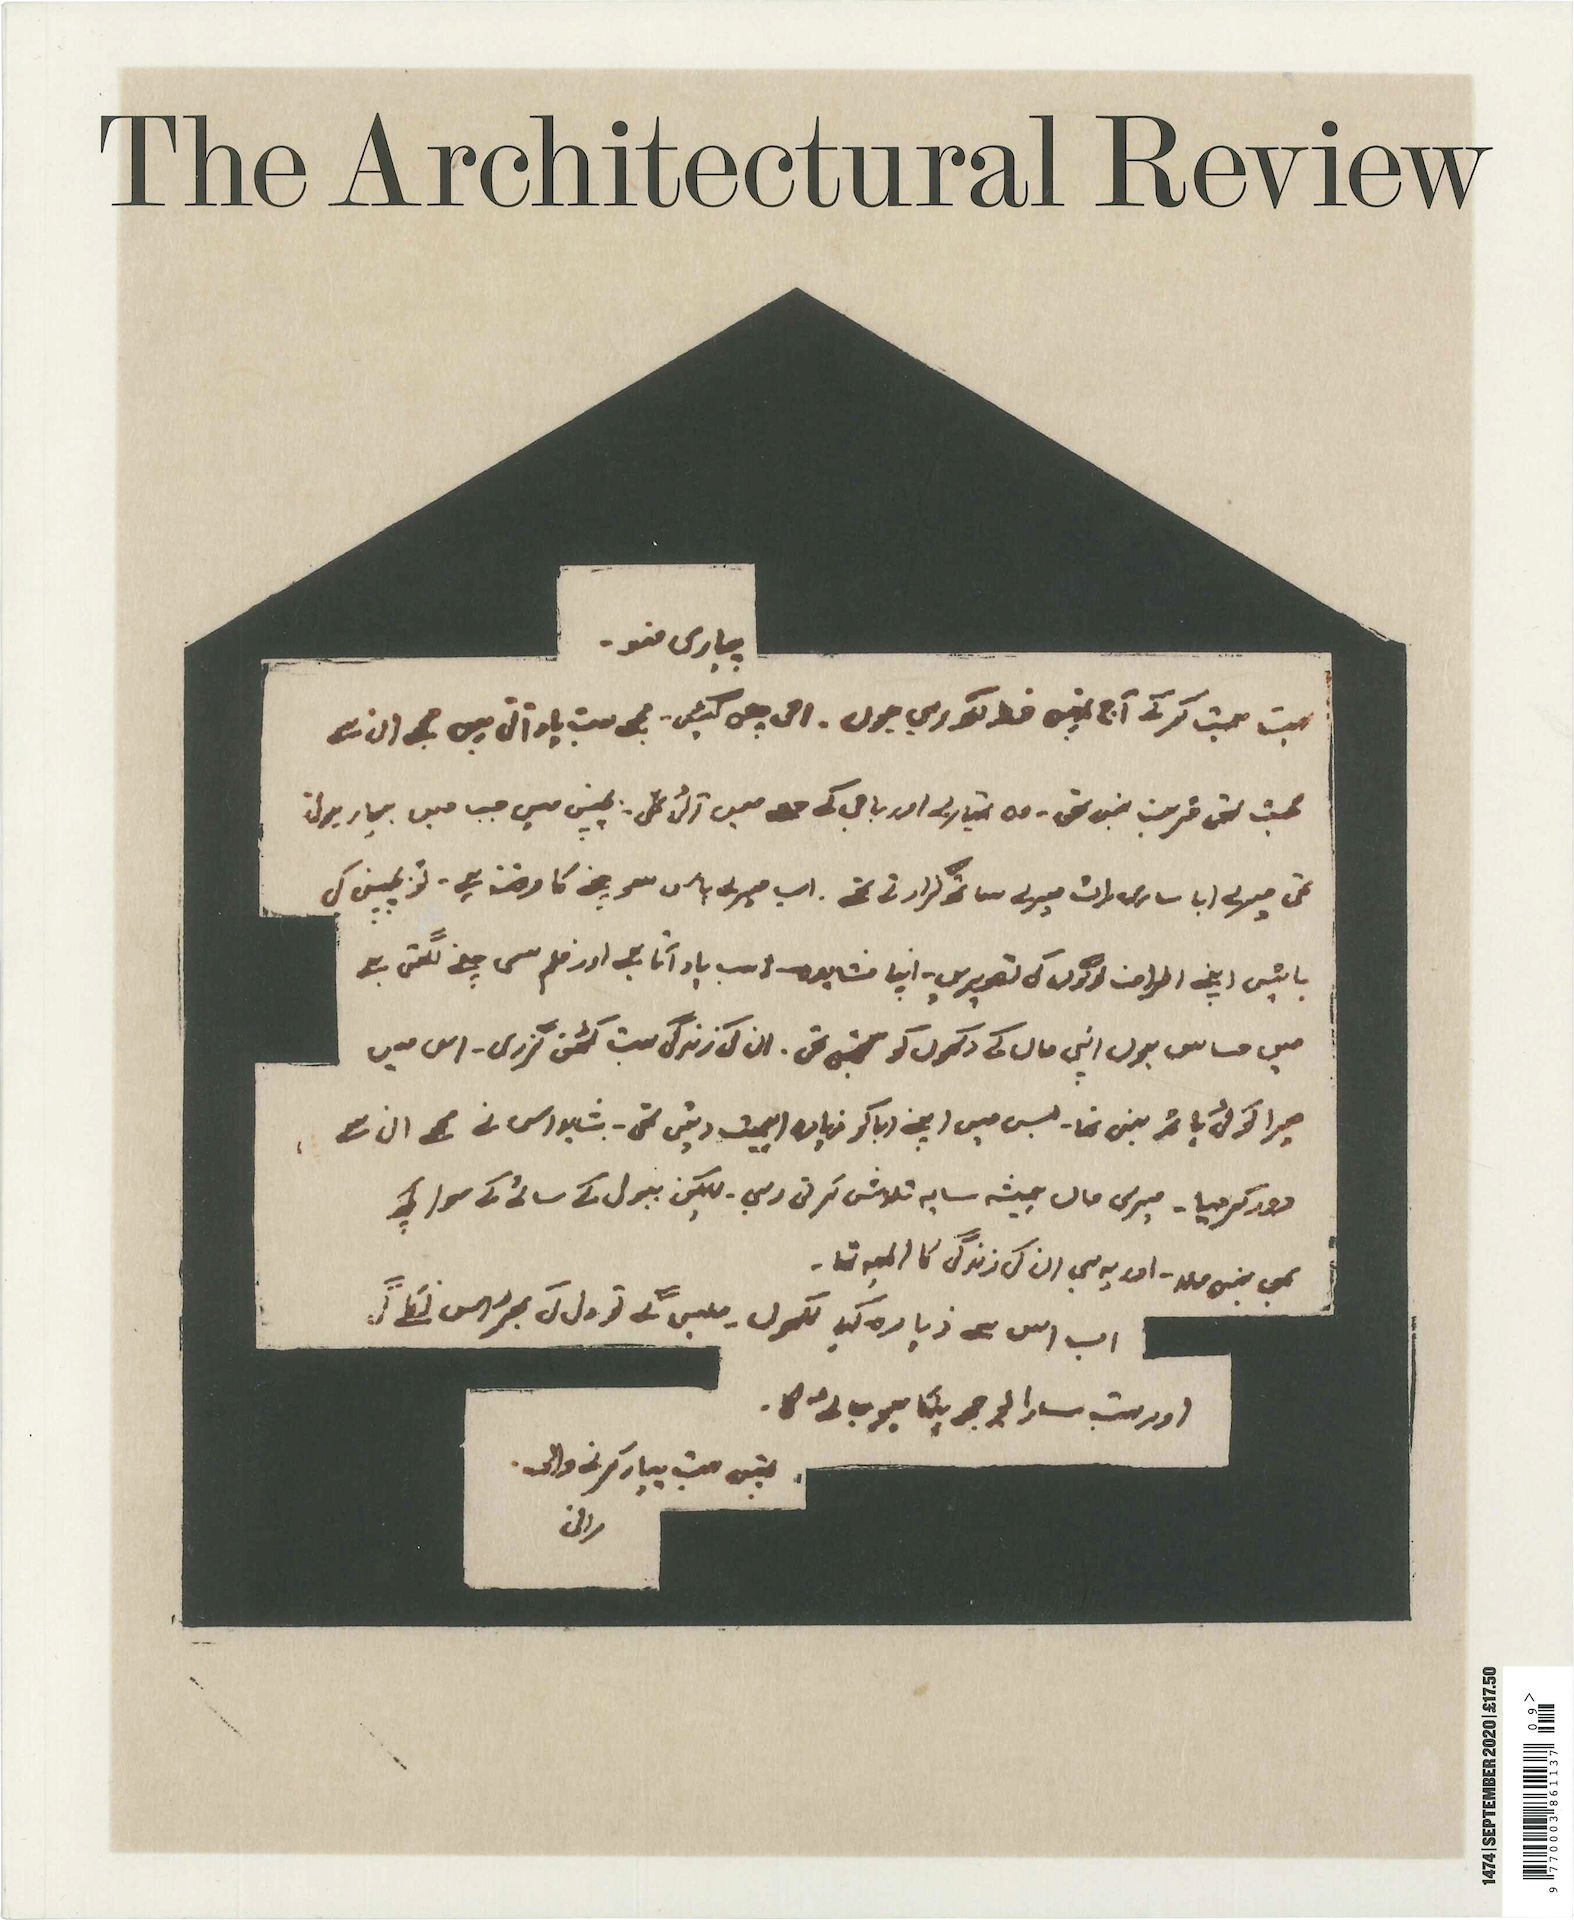 The Architectural Review
پیاری منو -
ہمت ہمت کر کے آج تمہیں خط لکھ رہی ہوں ۔ امی چلی گئیں - مجھے بہت یاد آتی ہیں مجھے ان سے
محبت تھی قربت نہیں تھی - وہ تمہارے اور باجی کے حصہ میں آئی تھی - بچپن میں جب میں بیمار ہوتی
تھی میرے ابا ساری رات میرے ساتھ گزارتے تھے . اب میرے پاس سوچنے کا وقت ہے - تو بچپن کی
باتیں اپنے اطراف لوگوں کی تصویریں - اپنا مشاہدہ سب یاد آتا ہے اور فلم سی چلنے لگتی ہے
میں حساس ہوں اپنی ماں کے دکھوں کو سمجھتی تھی . ان کی زندگی بہت کٹھن گزری - اس میں
میرا کوئی ہاتھ نہیں تھا - بس میں اپنے ابا کو زیادہ اہمیت دیتی تھی - شاید اس نے مجھے ان سے
دور کر دیا - میری ماں ہمیشہ سایہ تلاش کرتی رہی - لیکن ببول کے سائے کے سوا کچھ
بھی نہیں ملا - اور یہ ہی ان کی زندگی کا المیہ تھا -
اب اس سے زیادہ کیا لکھوں - ملیں گے تو دل کی بھڑاس نکلے گی
اور بہت سارا بوجھ ہلکا ہو جائے گا .
تمہیں بہت پیار کرنے والی .
رانی
1474 | SEPTEMBER 2020 | £17.50
09>
9 770003 861137